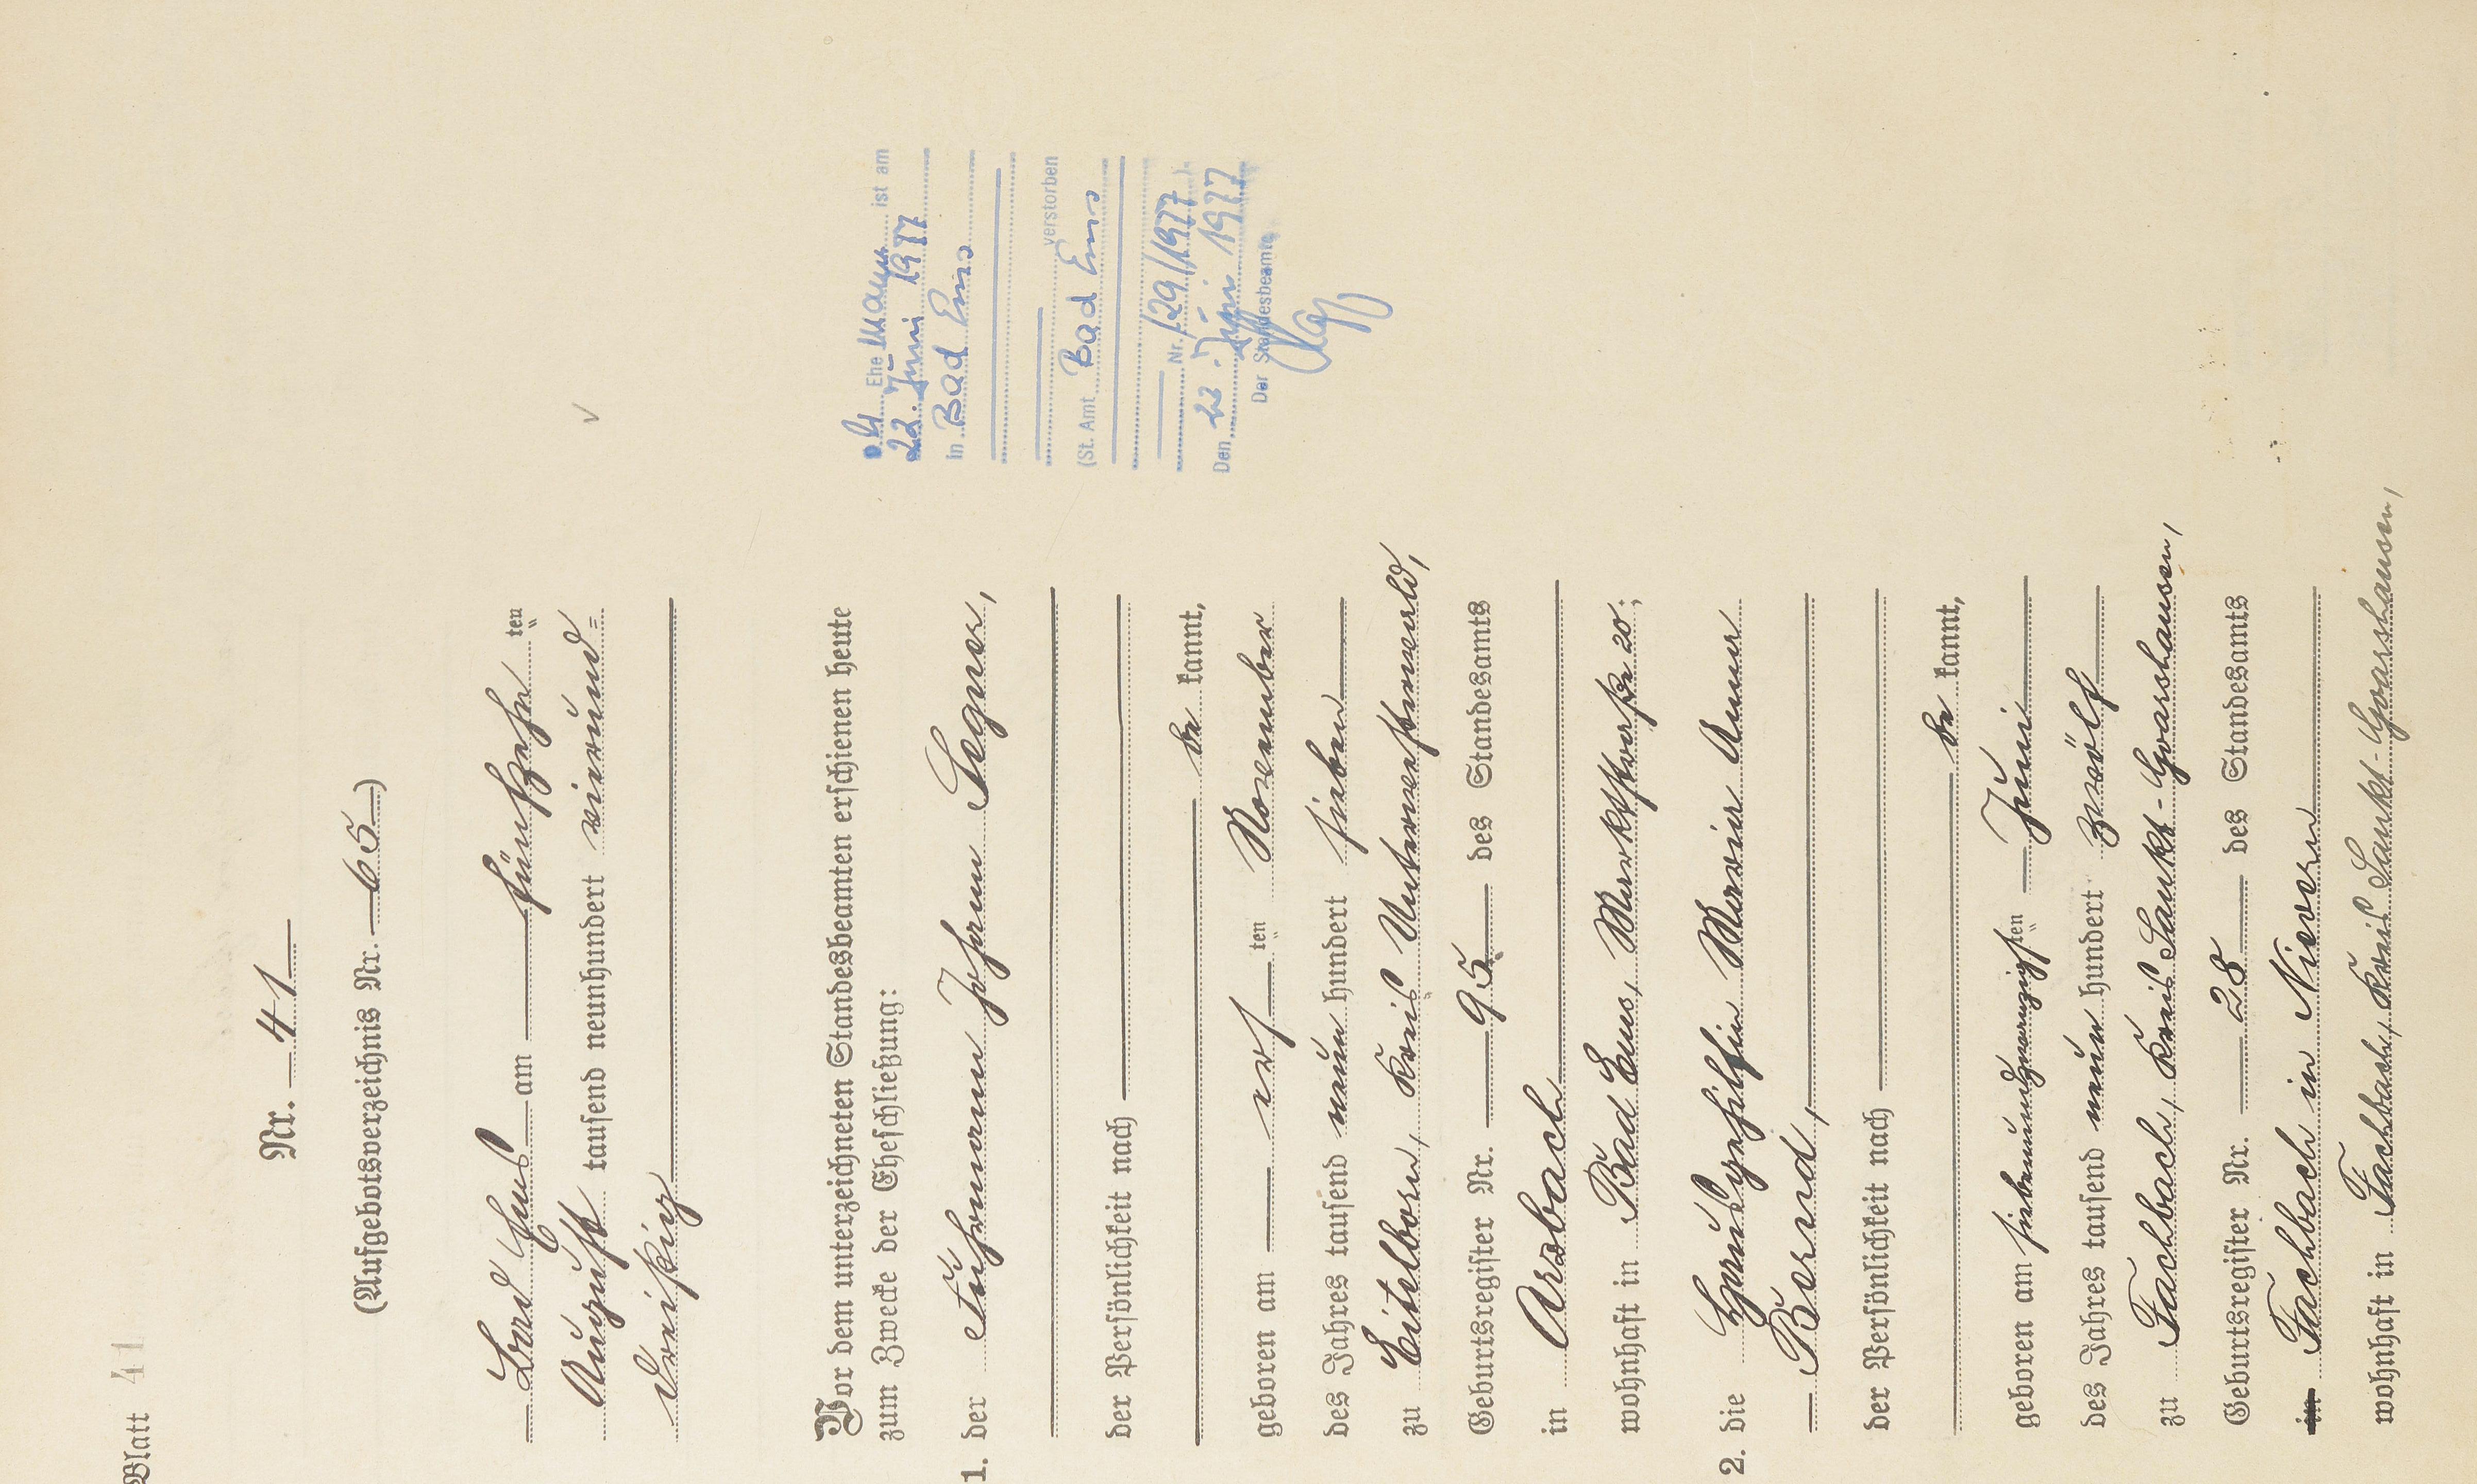 Blatt 41
Nr. 41
(Aufgebotsverzeichnis Nr. 65)
Bad Ems am fünfzehn ten
August tausend neunhundert vierund=
dreißig
Vor dem unterzeichneten Standesbeamten erschienen heute
zum Zwecke der Eheschließung:
1. der Fuhrmann Johann Segner,
der Persönlichkeit nach
be kannt,
geboren am ersten November
des Jahres tausend neun hundert sieben
zu Eitelborn, Kreis Unterwesterwald,
Geburtsregister Nr. 95 des Standesamts
in Arzbach
wohnhaft in Bad Ems, Marktstraße 20;
2. die Hausgehilfin Maria Anna
Bernd,
der Persönlichkeit nach
be kannt,
geboren am siebenundzwanzigsten Juni
des Jahres tausend neun hundert zwölf
zu Fachbach, Kreis Sankt-Goarshausen,
Geburtsregister Nr. 28 des Standesamts
in Fachbach in Nievern
wohnhaft in Fachbach, Kreis Sankt-Goarshausen,
Ehemann ist am
22. Juni 1977
in Bad Ems
verstorben
(St. Amt Bad Ems
Nr. 129/1977)
Den 22. Juni 1977
Der Standesbeamte